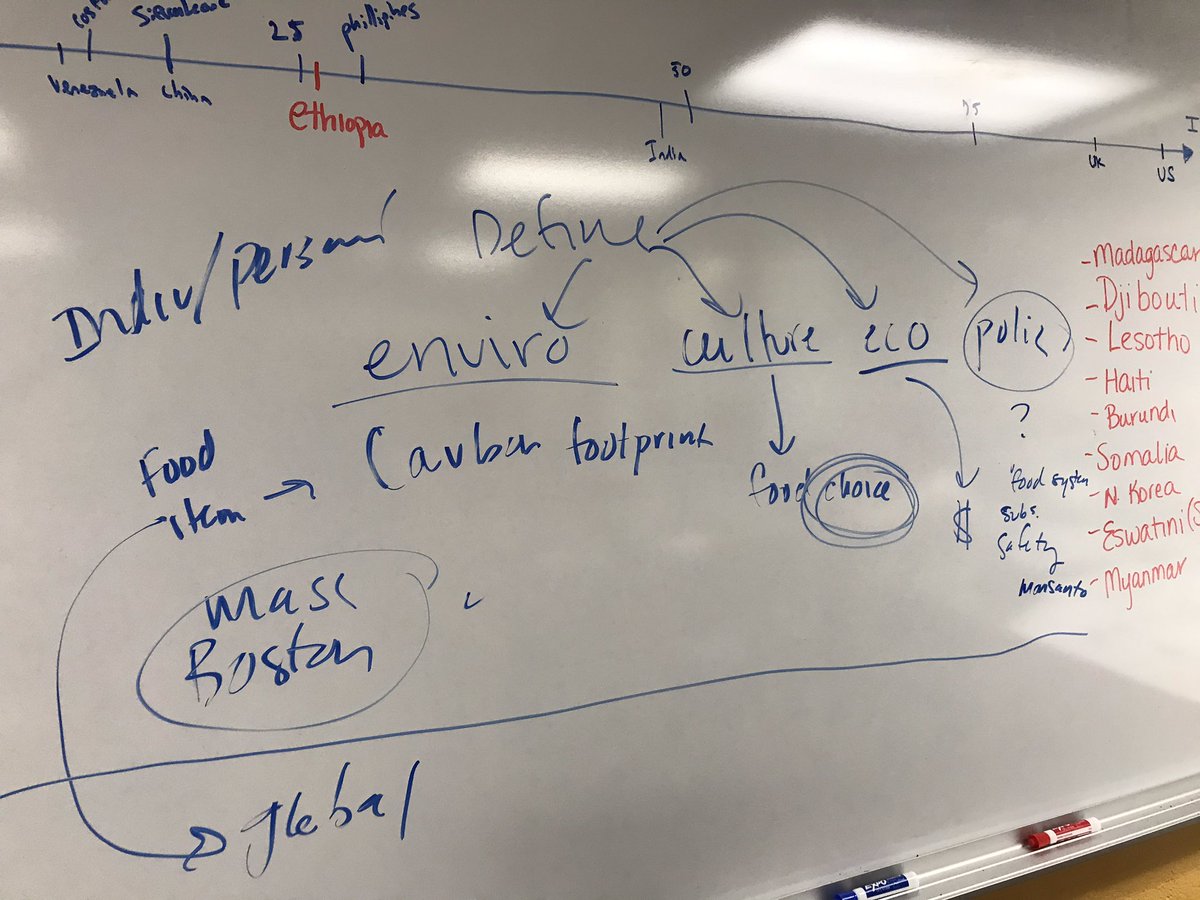 25
philliphes
Venezuela
China
ethiopia
50
India
75
UK
US
Indiv/personal
Define
enviro
culture
eco
polic
Carbon footprint
Food
item
food choice
$
?
food system
subs.
safety
Monsanto
Mass
Boston
global
-Madagascar
-Djibouti
-Lesotho
-Haiti
-Burundi
-Somalia
-N. Korea
-Eswatini (S
-Myanmar
EXPO